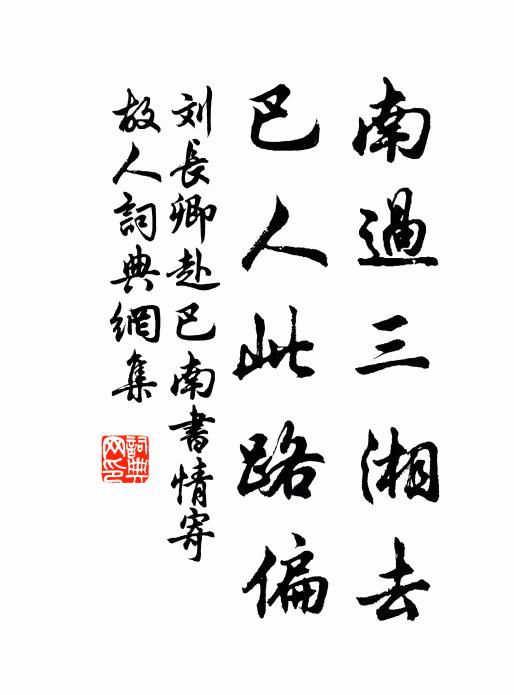 南過三湘去
巴人此路偏
刘長卿赴巴南書情寄
故人詞典網集
詞典网印